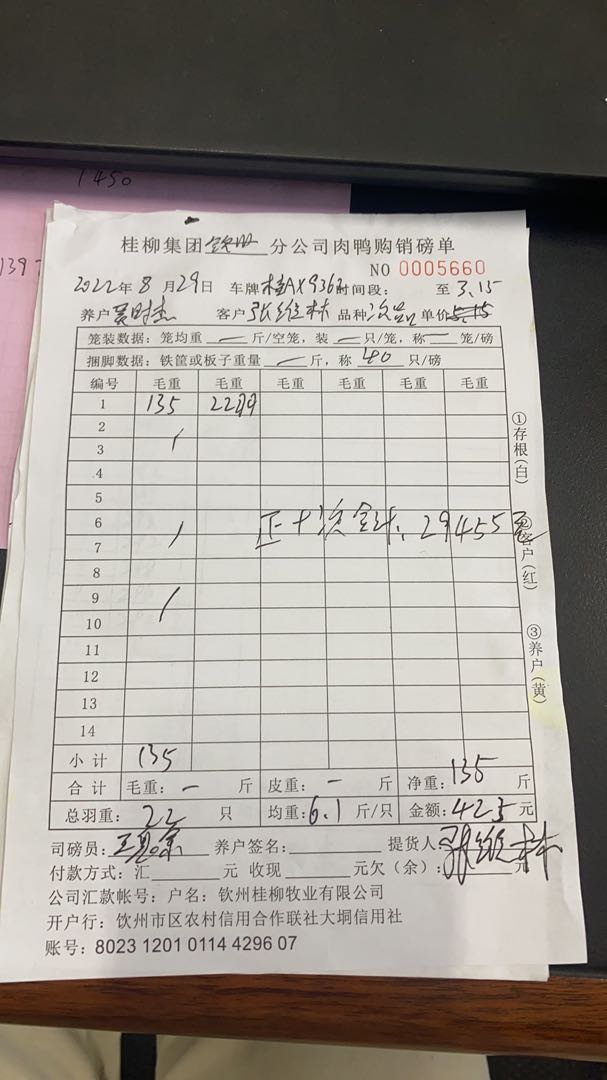 1450
139
桂柳集团 分公司肉鸭购销磅单
NO 0005660
2022年8月29日 车牌桂AX936 时间段: 至 3.15
养户 客户张维林 品种次品 单价
笼装数据: 笼均重 — 斤/空笼, 装 — 只/笼, 称 — 笼/磅
捆脚数据: 铁筐或板子重量 — 斤, 称 40 只/磅
编号 毛重 毛重 毛重 毛重 毛重 毛重
1 135 22羽
2
3
4
5
6
正+次合计: 29455
7
8
9
10
11
12
13
14
小计 135
合计 毛重: — 斤 皮重: — 斤 净重: 135 斤
总羽重: 22 只 均重: 6.1 斤/只 金额: 425 元
司磅员: 养户签名: 提货人: 张维林
付款方式: 汇 元 收现 元欠(余): 元
公司汇款帐号: 户名: 钦州桂柳牧业有限公司
开户行: 钦州市区农村信用合作联社大垌信用社
账号: 8023 1201 0114 4296 07
①存根(白)
②客户(红)
③养户(黄)